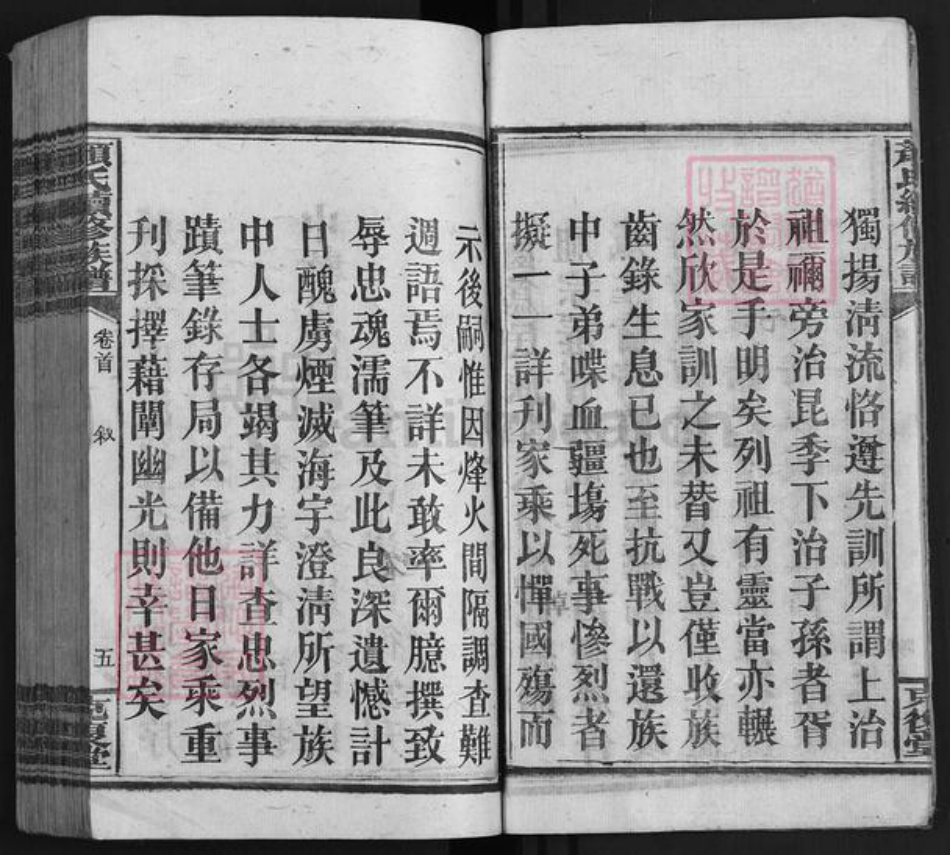 獨揚清流恪遵先訓所謂上治
祖禰旁治昆季下治子孫者胥
於是乎明矣列祖有靈當亦輾
然欣家訓之未替又豈僅收族
齒錄生息已也至抗戰以還族
中子弟喋血疆塲死事慘烈者
擬一一詳刋家乘以憚國殤而
示後嗣惟因烽火間隔調查難
週語焉不詳未敢率爾臆撰致
辱忠魂濡筆及此良深遺憾計
日醜虜煙滅海宇澄清所望族
中人士各竭其力詳查忠烈事
蹟筆錄存局以備他日家乘重
刋採擇藉闡幽光則幸甚矣
氏續修族譜
卷首
叙
五